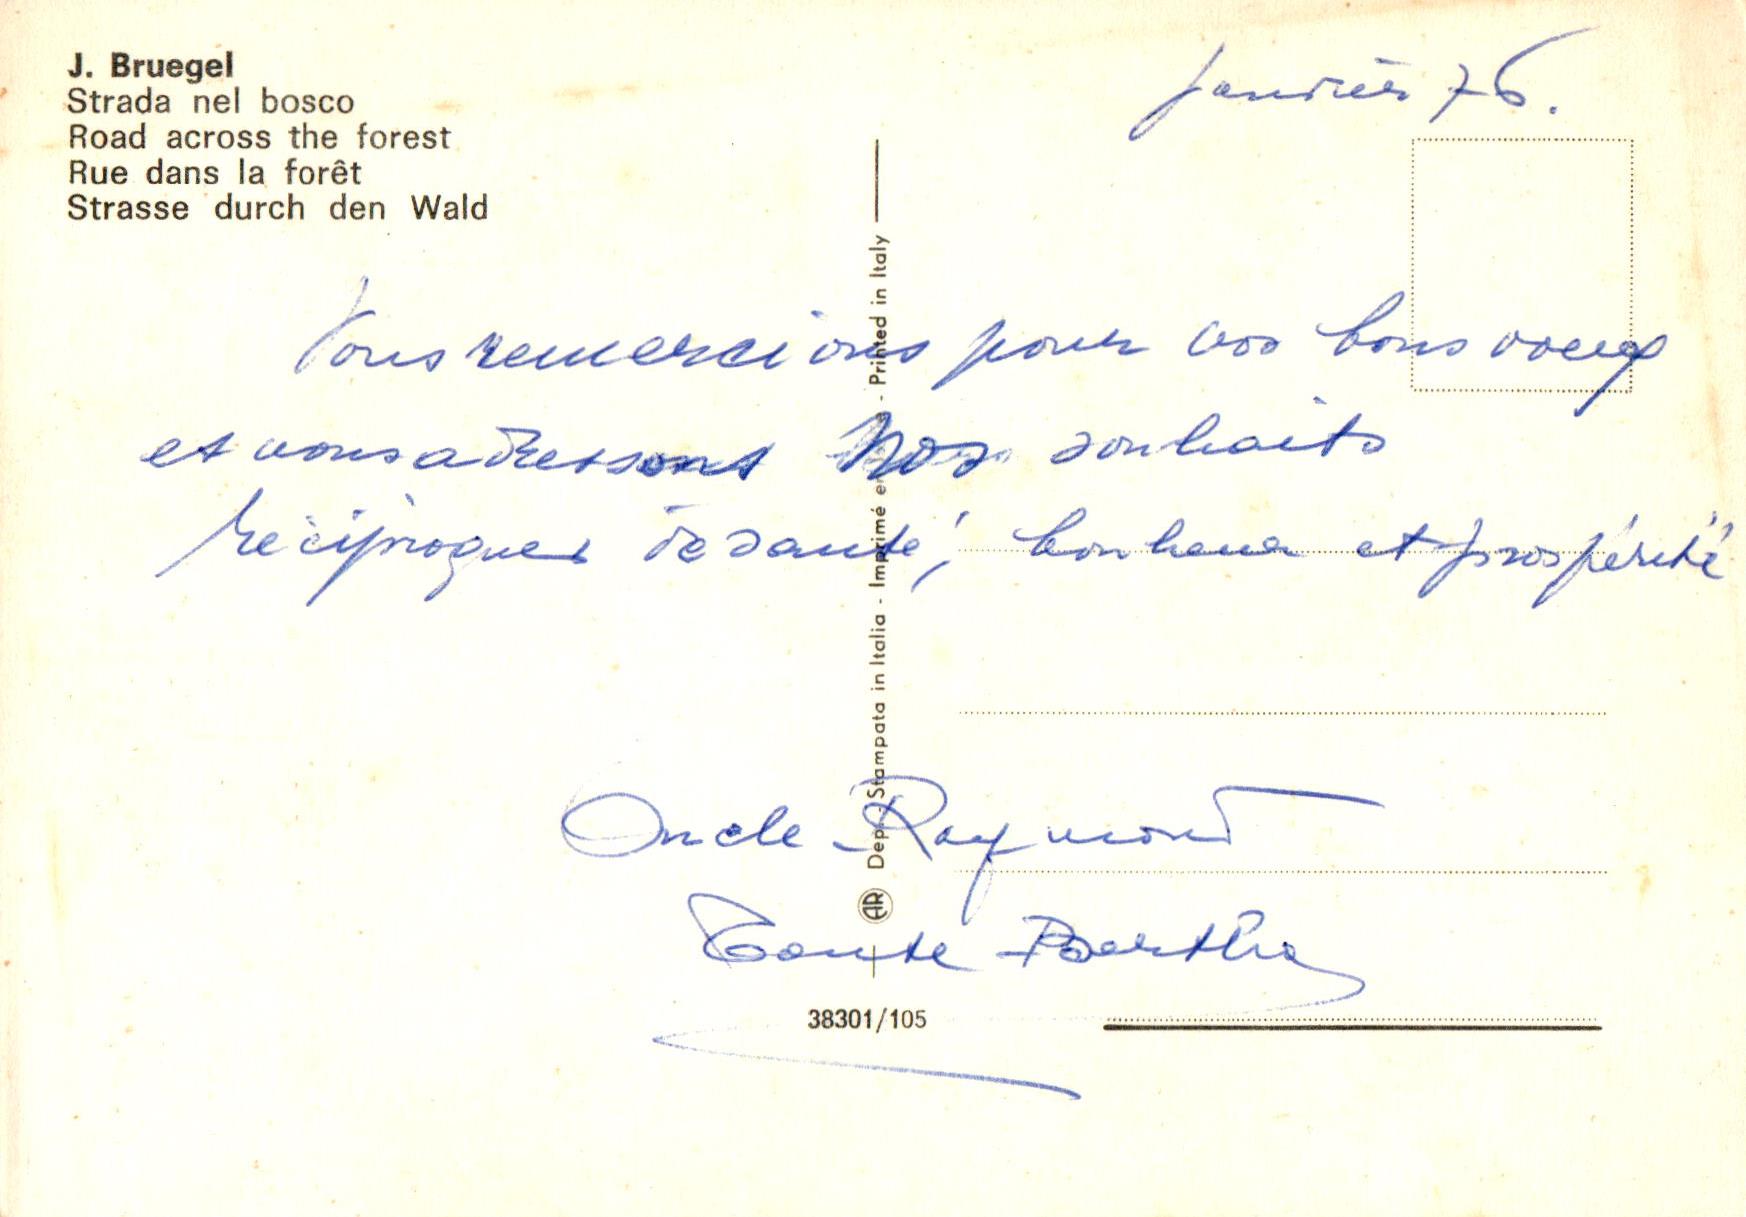 J. Bruegel
Strada nel bosco
Road across the forest
Rue dans la forêt
Strasse durch den Wald
Janvier 76.
Vous remercions pour vos bons voeux
et vous adressons nos souhaits
réciproques de santé, bonheur et prospérité
Oncle Raymond
Tante Bertha
Dep. - Stampata in Italia - Imprimé en - Printed in Italy
AR
38301/105